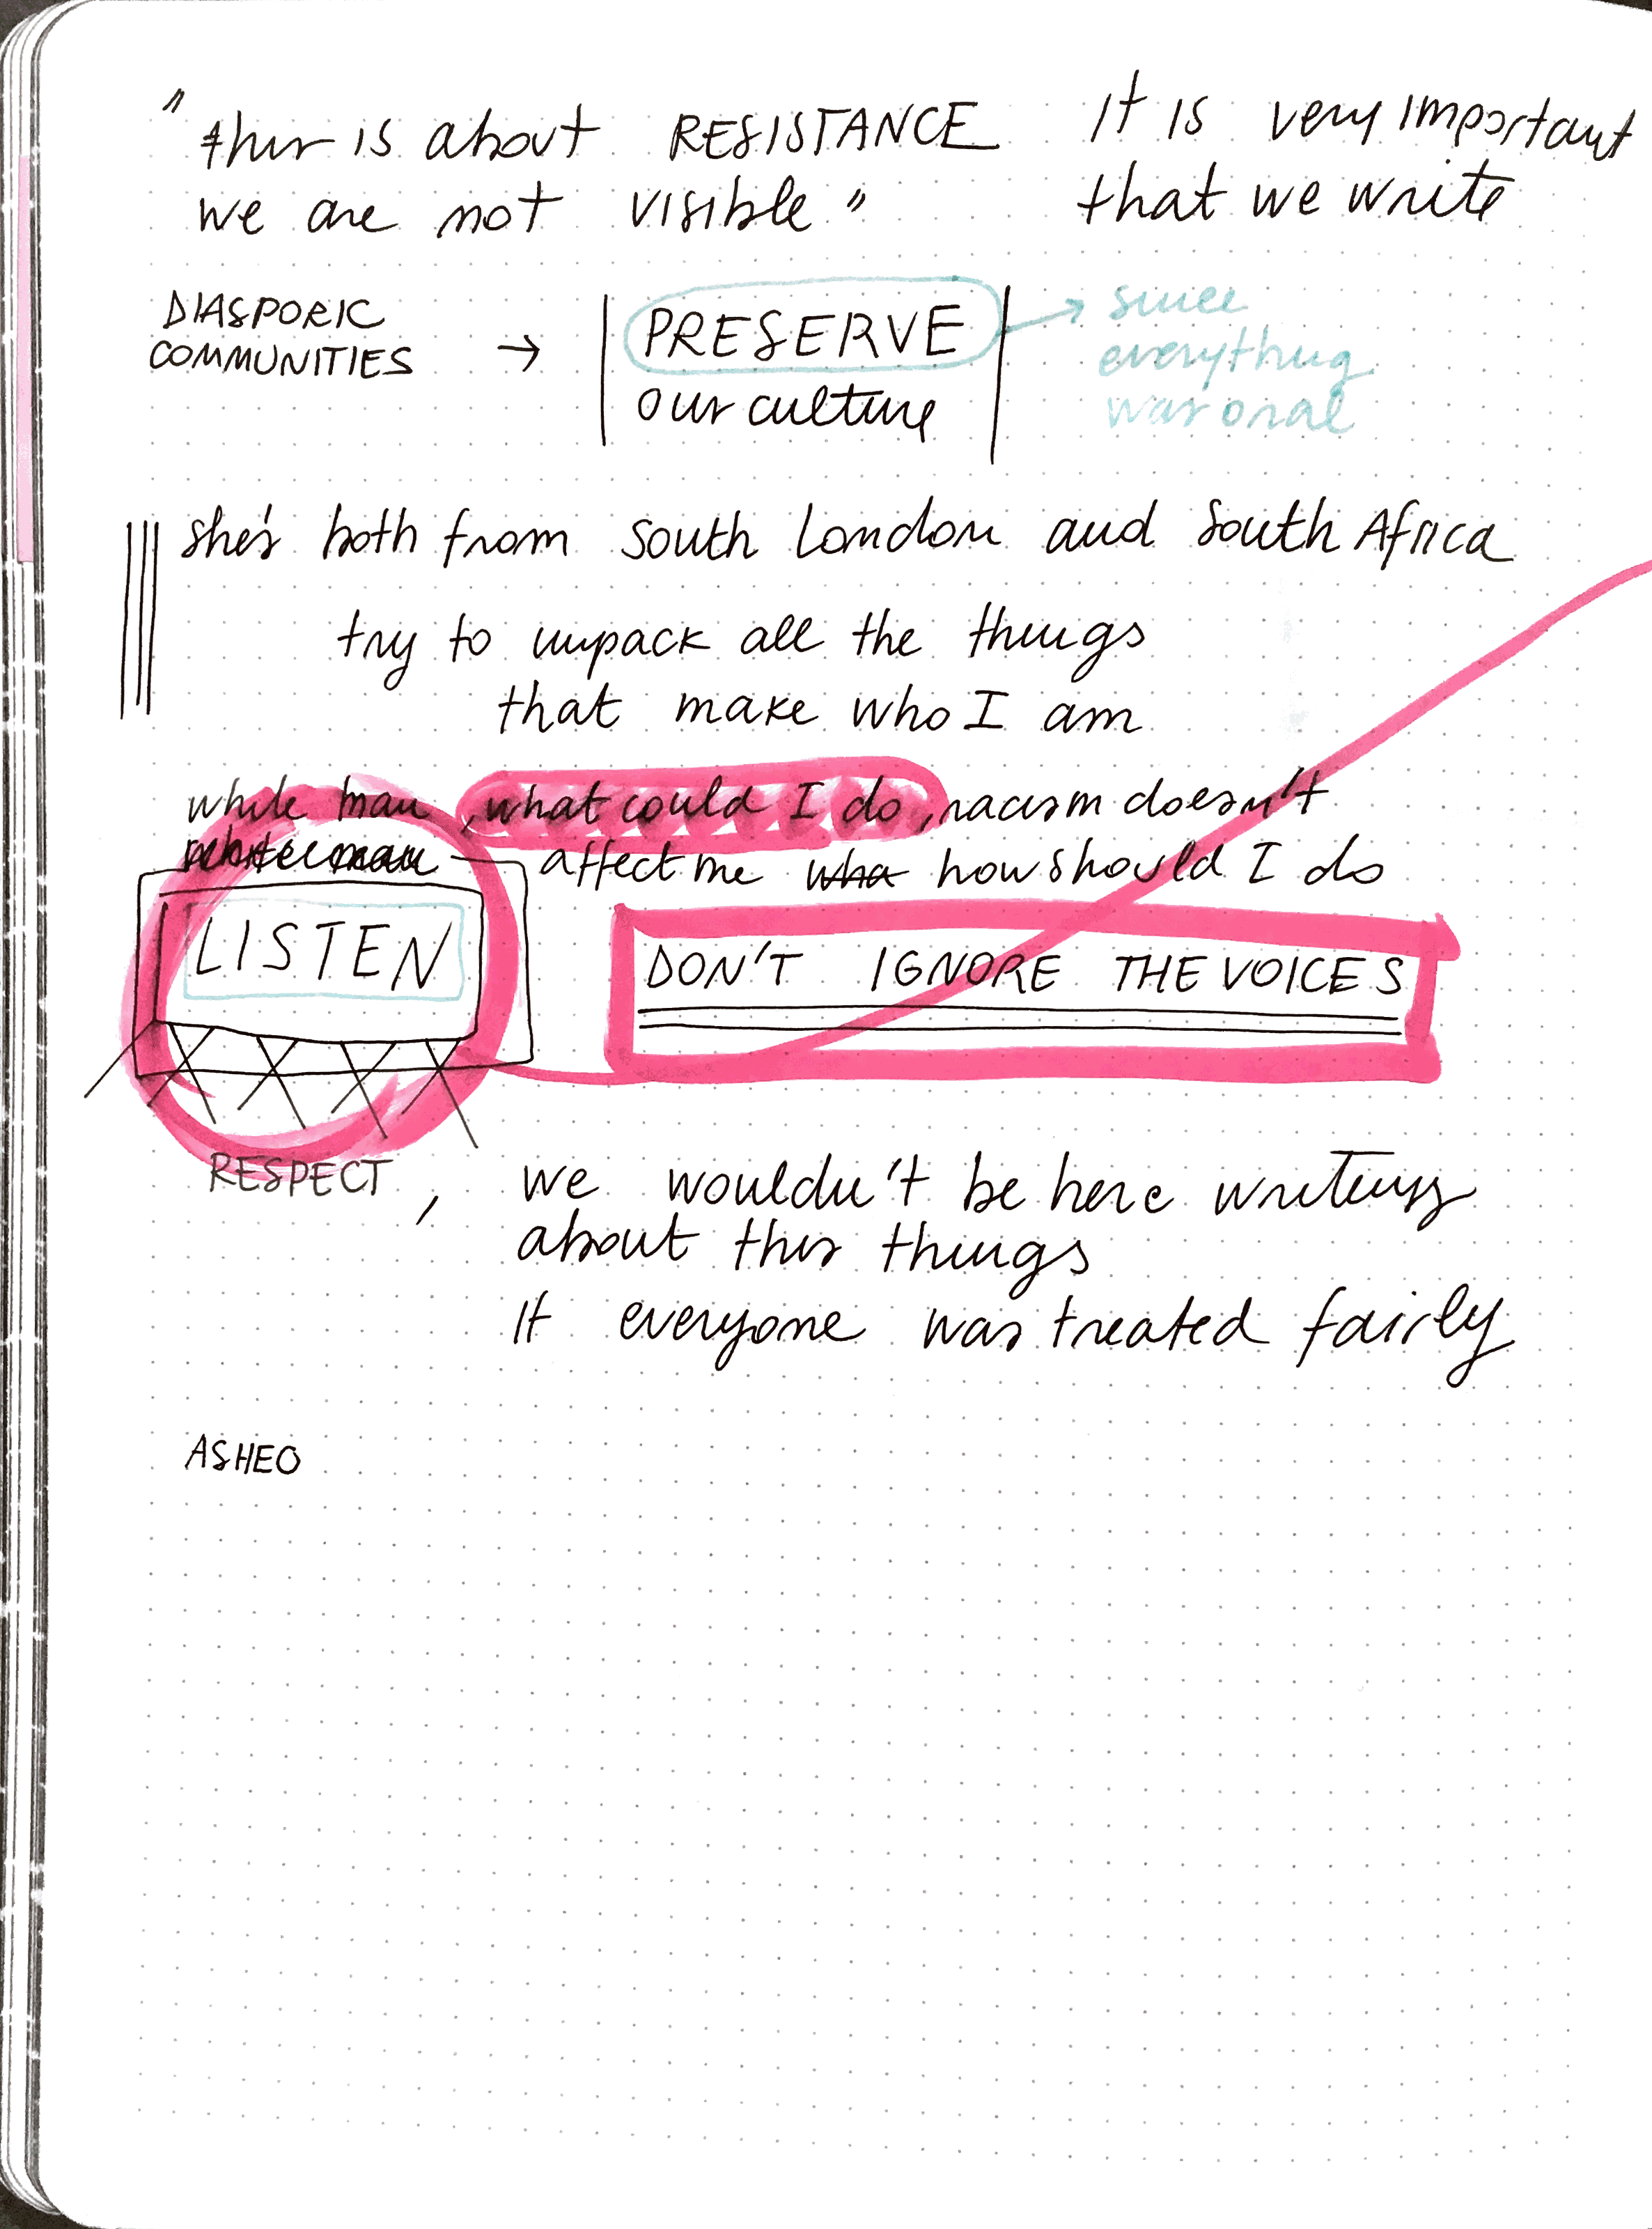 "this is about RESISTANCE
we are not visible"
It is very important
that we write
DIASPORIC
COMMUNITIES → PRESERVE
our culture
since
everything
was oral
she's both from South London and South Africa
try to unpack all the things
that make who I am
white man, what could I do, racism doesn't
affect me wha how should I do
LISTEN
DON'T IGNORE THE VOICES
RESPECT, we wouldn't be here writing
about this things
If everyone was treated fairly
ASHEO